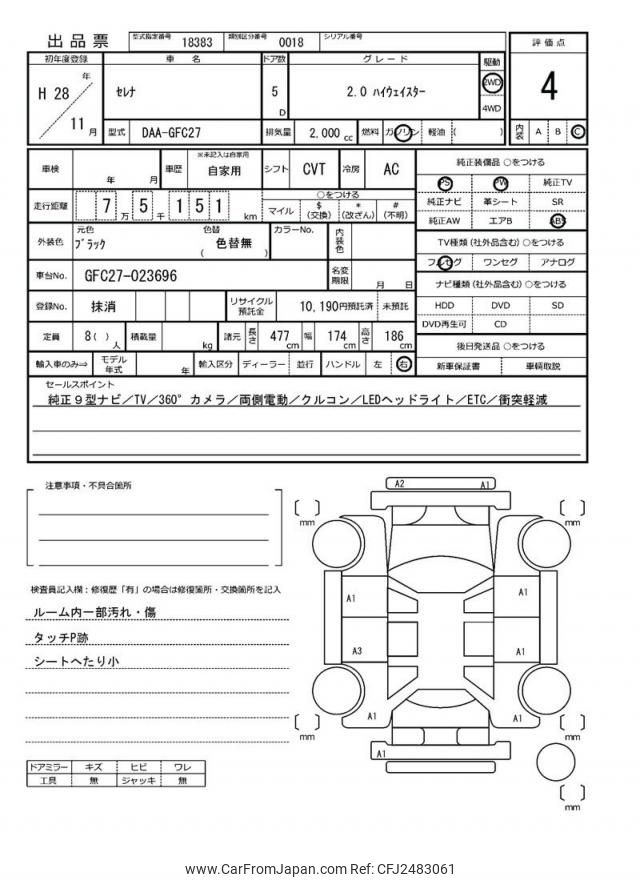 出品票
型式指定番号 18383 類別区分番号 0018 シリアル番号
初年度登録 車名 ドア数 グレード 駆動 評価点
H 28 年 11 月
セレナ 5 D 2.0 ハイウェイスター 2WD 4WD
4
型式 DAA-GFC27 排気量 2,000 cc 燃料 ガソリン 軽油 ( )
内装 A B C
車検 年 月 車歴 ※未記入は自家用 自家用 シフト CVT 冷房 AC
純正装備品 ○をつける
PS PW 純正TV
純正ナビ 革シート SR
純正AW エアB ABS
走行距離 7 万 5 千 1 5 1 km
○をつける
マイル $ (交換) * (改ざん) # (不明)
外装色 元色 ブラック 色替 色替無 ( ) カラーNo. 内装色
TV種類 (社外品含む) ○をつける
フルセグ ワンセグ アナログ
車台No. GFC27-023696 名変期限 月 日
ナビ種類 (社外品含む) ○をつける
HDD DVD SD
DVD再生可 CD
登録No. 抹消 リサイクル預託金 10,190円預託済 未預託
定員 8( ) 人 積載量 kg 諸元 長さ 477 cm 幅 174 cm 高さ 186 cm
後日発送品 ○をつける
新車保証書 車輌取説
輸入車のみ⇒ モデル年式 年 輸入区分 ディーラー 並行 ハンドル 左 右
セールスポイント
純正９型ナビ／TV／360°カメラ／両側電動／クルコン／LEDヘッドライト／ETC／衝突軽減
注意事項・不具合箇所
検査員記入欄：修復歴「有」の場合は修復箇所・交換箇所を記入
ルーム内一部汚れ・傷
タッチP跡
シートへたり小
ドアミラー キズ ヒビ ワレ
工具 無 ジャッキ 無
A2 A1
mm mm
A1 A1
A3 A1
A1 A1
mm mm
A1
mm
www.CarFromJapan.com Ref: CFJ2483061